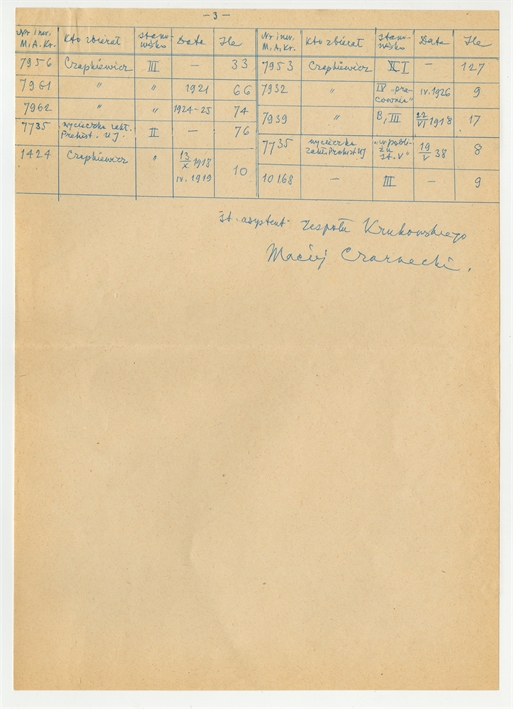 – 3 –
Nr i nw. M.A.Kr. | Kto zbierał | stanowisko | Data | Ile | Nr i nw. M.A.Kr. | Kto zbierał | stanowisko | Data | Ile
7956 | Czapkiewicz | III | — | 33 | 7953 | Czapkiewicz | | — | 127
7961 | " | | 1921 | 66 | 7932 | " | IV "pracownia" | IV.1926 | 9
7962 | " | " | 1924-25 | 74 | 7939 | " | B, III | VI 1918 | 17
7735 | wycieczka zakł. Prehist. UJ | II | — | 76 | 7735 | wycieczka zakł. Prehist UJ | "w pobliżu st. V" | 19/V 38 | 8
1424 | Czapkiewicz | " | 13/X 1918 IV.1919 | 10 | 10168 | — | III | — | 9
st. asystent zespołu Krukowskiego
Maciej Czarnecki.